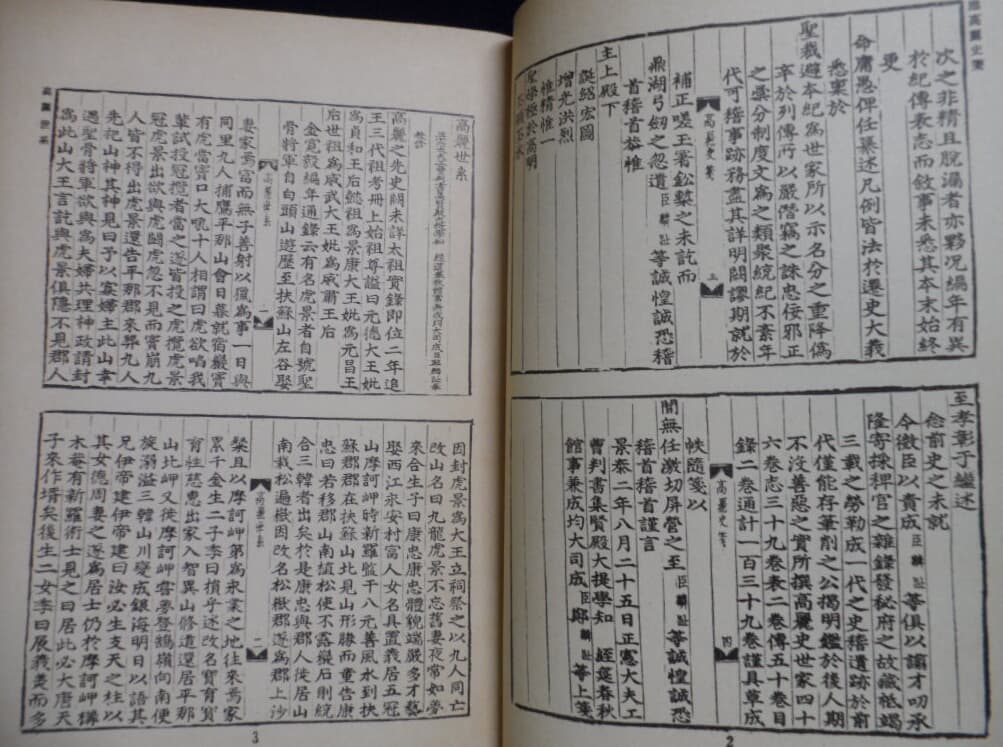 進高麗史箋
次之非精且脫漏者亦夥況編年有異
於紀傳表志而敘事未悉其本末始終
更
命庸愚俾任纂述凡例皆法於遷史大義
悉稟於
聖裁避本紀爲世家所以示名分之重降僞
辛於列傳所以嚴僭竊之誅忠佞邪正
之彙分制度文爲之類聚統紀不紊年
代可稽事跡務盡其詳明闕謬期就於
高麗史箋 三
補正嗟玉署鈆槧之未訖而
鼎湖弓劒之忽遺臣麟趾等誠惶誠恐稽
首稽首恭惟
主上殿下
誕紹宏圖
增光洪烈
惟精惟一
聖學極於高明
至孝彰于繼述
念前史之未就
令微臣以責成臣麟趾等俱以譾才叨承
隆寄採稗官之雜錄發秘府之故藏祗竭
三載之勞勒成一代之史稽遺跡於前
代僅能存筆削之公揭明鑑於後人期
不沒善惡之實所撰高麗史世家四十
六卷志三十九卷表二卷傳五十卷目
錄二卷通計一百三十九卷謹具草成
高麗史箋 四
帙隨箋以
聞無任激切屏營之至臣麟趾等誠惶誠恐
稽首稽首謹言
景泰二年八月二十五日正憲大夫工
曹判書集賢殿大提學知 經筵春秋
館事兼成均大司成臣鄭麟趾等上箋
2
高麗世系
高麗世系
高麗之先史闕未詳太祖實錄即位二年追
王三代祖考冊上始祖尊謚曰元德大王妣
爲貞和王后懿祖爲景康大王妣爲元昌王
后世祖爲威武大王妣爲威肅王后
金寬毅編年通錄云有名虎景者自號聖
骨將軍自白頭山遊歷至扶蘇山左谷娶
高麗世系 一
妻家焉富而無子善射以獵爲事一日與
同里九人捕鷹平那山會日暮就宿巖竇
有虎當竇口大吼十人相謂曰虎欲啗我
輩試投冠攬者當之遂皆投之虎攬虎景
冠虎景出欲與虎鬪虎忽不見而竇崩九
人皆不得出虎景還告平那郡來葬九人
先祀山神其神見曰予以寡婦主此山幸
遇聖骨將軍欲與爲夫婦共理神政請封
爲此山大王言訖與虎景俱隱不見郡人
因封虎景爲大王立祠祭之以九人同亡
改山名曰九龍虎景不忘舊妻夜常如夢
來合生子曰康忠康忠體貌端嚴多才藝
娶西江永安村富人女名具置義居五冠
山摩訶岬時新羅監干八元善風水到扶
蘇郡郡在扶蘇山北見山形勝而童告康
忠曰若移郡山南植松使不露巖石則統
合三韓者出矣於是康忠與郡人徙居山
南栽松遍嶽因改名松嶽郡遂爲郡上沙
高麗世系 二
粲且以摩訶岬第爲永業之地往來焉家
累千金生二子季曰損乎述改名寶育寶
育性慈惠出家入智異山修道還居平那
山北岬又徙摩訶岬嘗夢登鵠嶺向南便
旋溺溢三韓山川變成銀海明日以語其
兄伊帝建伊帝建曰汝必生支天之柱以
其女德周妻之遂爲居士仍於摩訶岬構
木菴有新羅術士見之曰居此必大唐天
子來作壻矣後生二女季曰辰義美而多
3